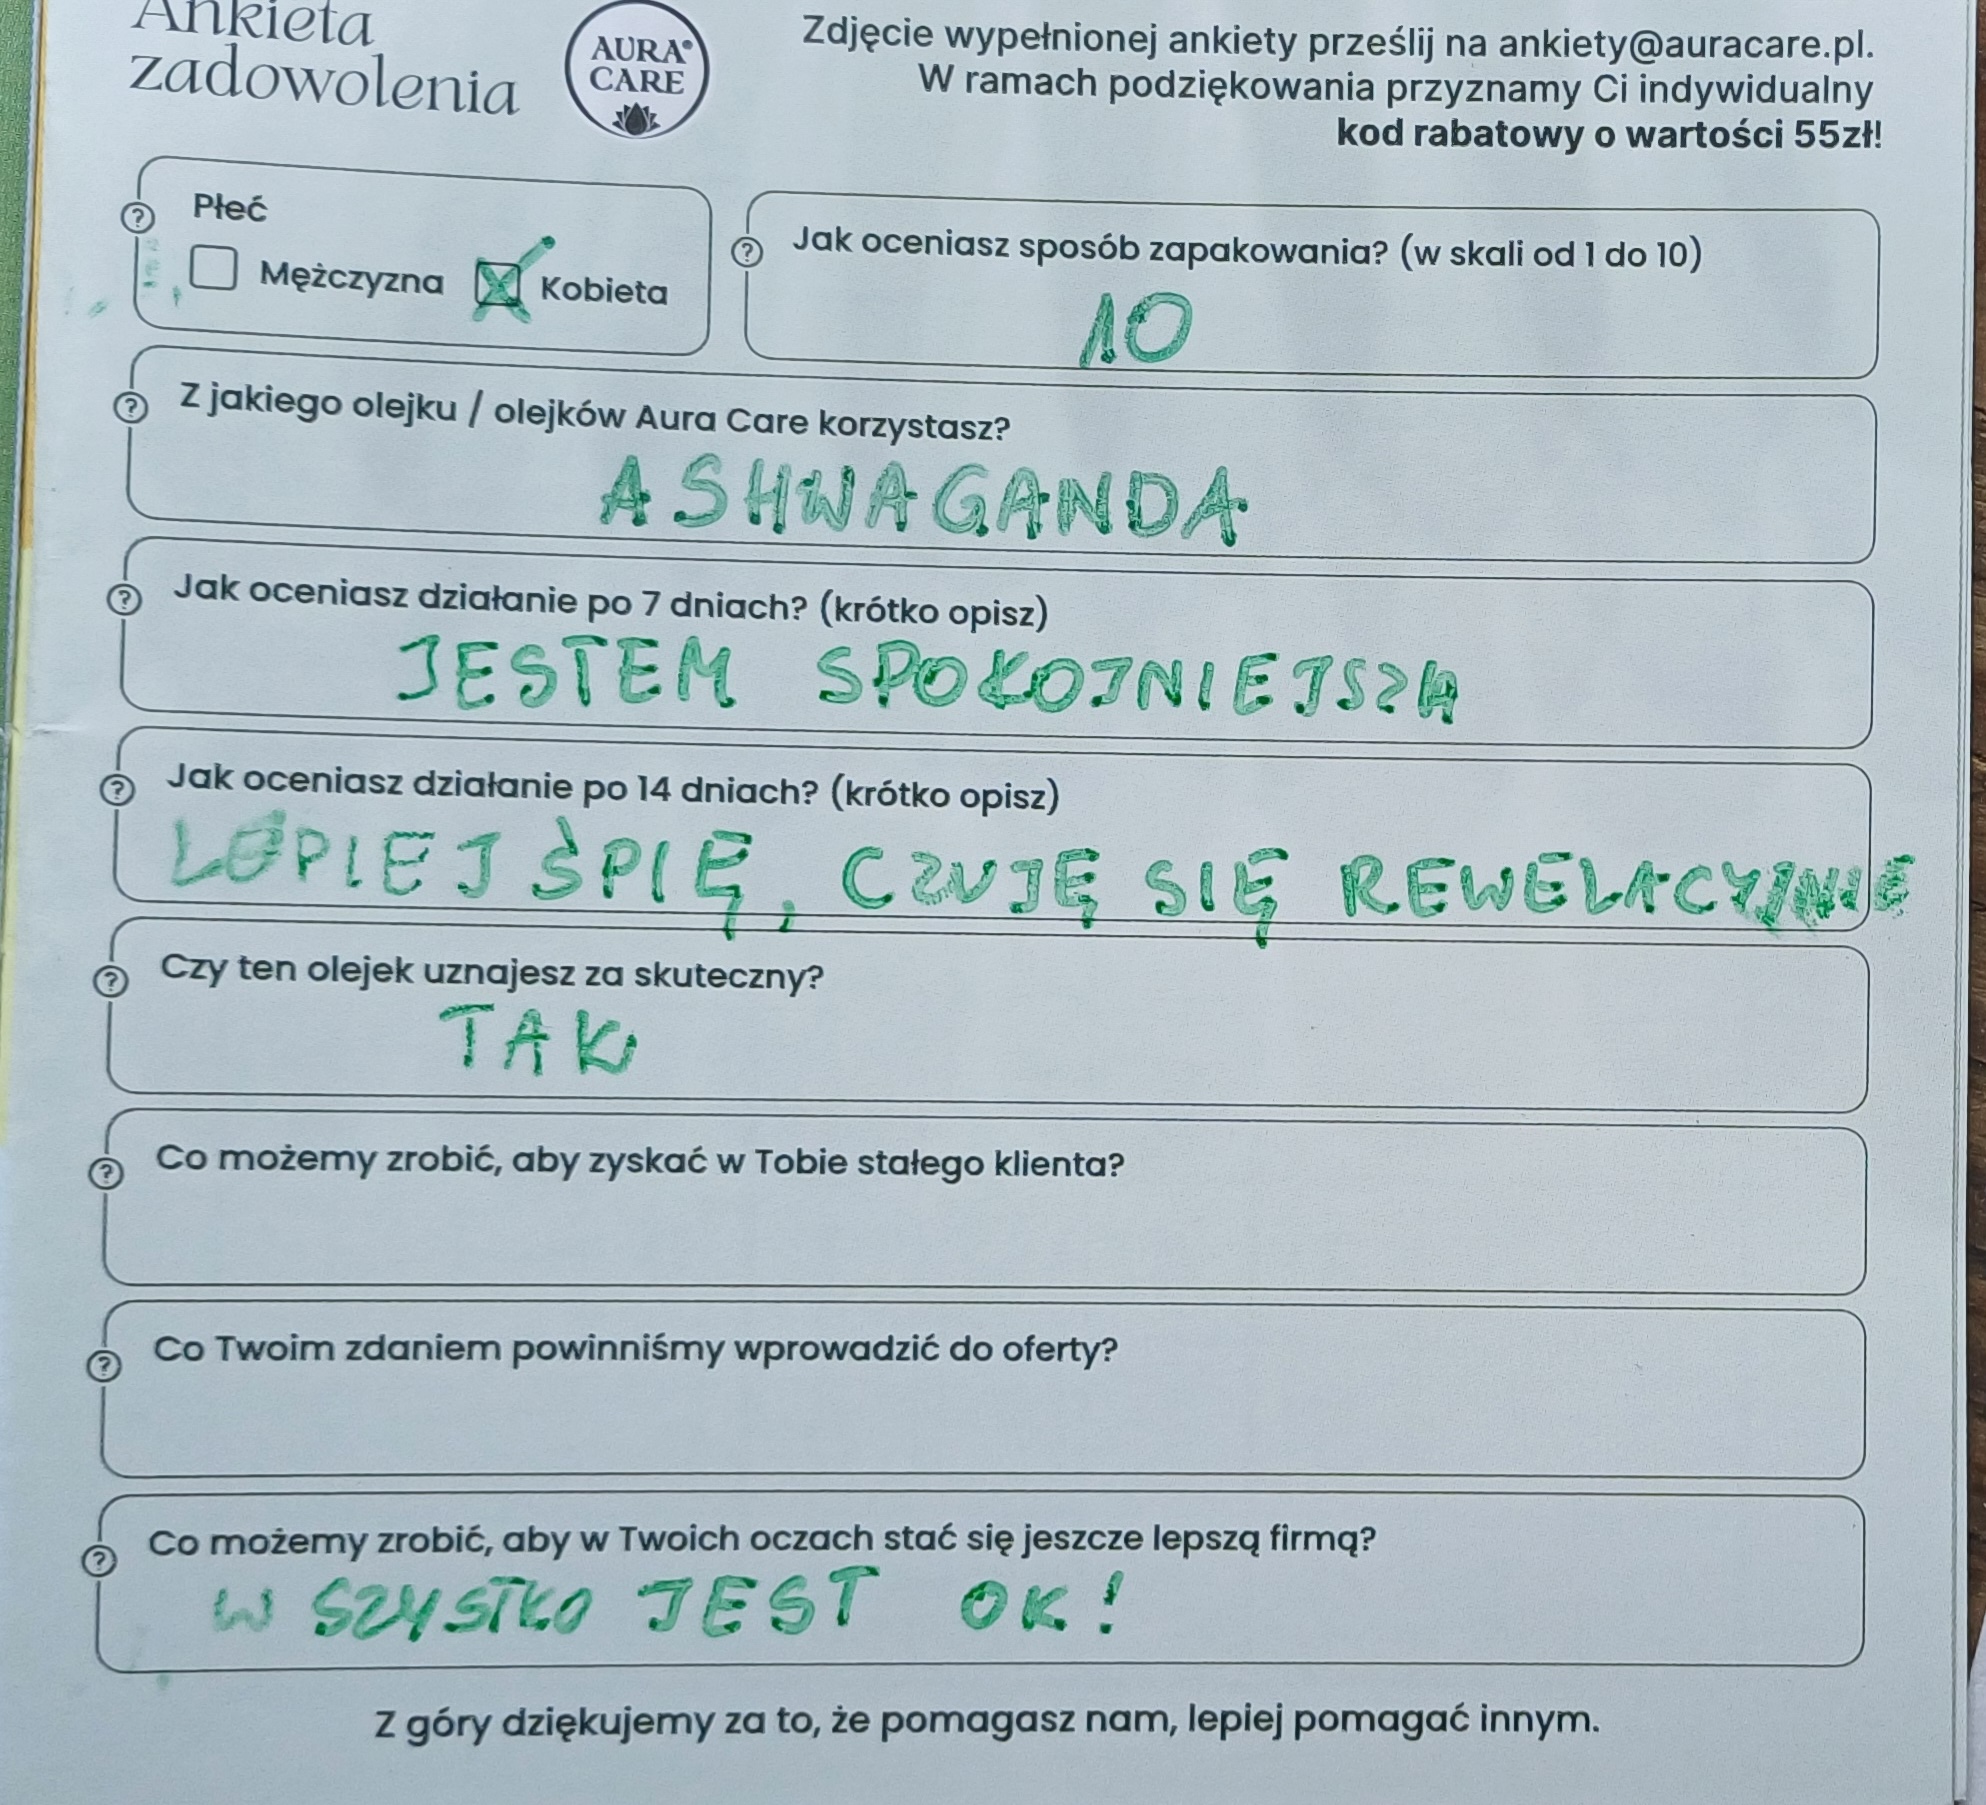 Ankieta
zadowolenia
AURA®
CARE
Zdjęcie wypełnionej ankiety prześlij na ankiety@auracare.pl.
W ramach podziękowania przyznamy Ci indywidualny
kod rabatowy o wartości 55zł!
? Płeć
Mężczyzna X Kobieta
? Jak oceniasz sposób zapakowania? (w skali od 1 do 10)
10
? Z jakiego olejku / olejków Aura Care korzystasz?
ASHWAGANDA
? Jak oceniasz działanie po 7 dniach? (krótko opisz)
JESTEM SPOKOJNIEJSZA
? Jak oceniasz działanie po 14 dniach? (krótko opisz)
LEPIEJ ŚPIĘ, CZUJĘ SIĘ REWELACYJNIE
? Czy ten olejek uznajesz za skuteczny?
TAK
? Co możemy zrobić, aby zyskać w Tobie stałego klienta?
? Co Twoim zdaniem powinniśmy wprowadzić do oferty?
? Co możemy zrobić, aby w Twoich oczach stać się jeszcze lepszą firmą?
WSZYSTKO JEST OK!
Z góry dziękujemy za to, że pomagasz nam, lepiej pomagać innym.